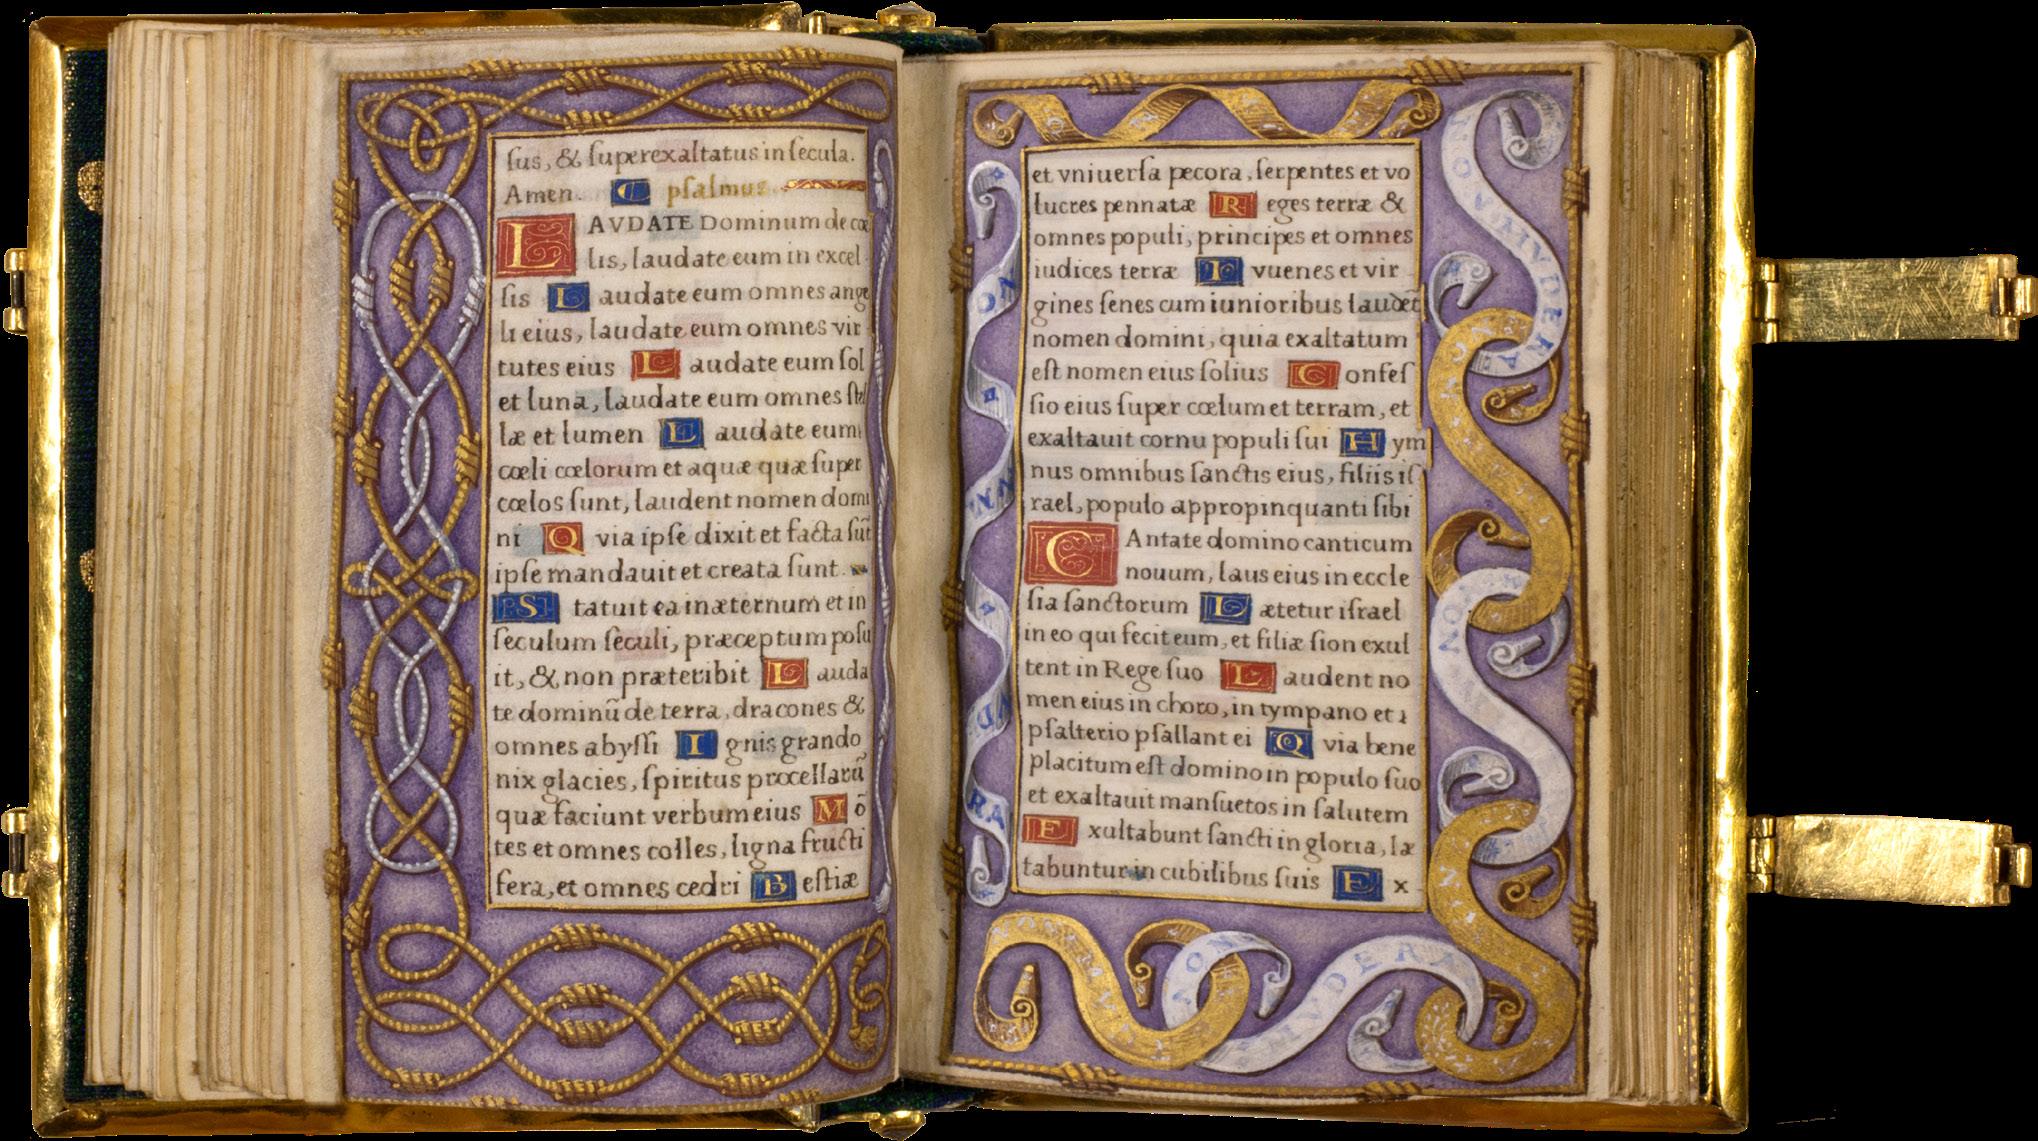 ſus, & ſuperexaltatus in ſecula.
Amen pſalmus
LAVDATE Dominum de cœ
lis, laudate eum in excel
ſis Laudate eum omnes ange
li eius, laudate eum omnes vir
tutes eius Laudate eum ſol
et luna, laudate eum omnes ſtel
læ et lumen Laudate eum
cœli cœlorum et aquæ quæ ſuper
cœlos ſunt, laudent nomen domi
ni Quia ipſe dixit et facta ſūt
ipſe mandauit et creata ſunt.
Statuit ea in æternum et in
ſeculum ſeculi, præceptum poſu
it, & non præteribit Lauda
te dominū de terra, dracones &
omnes abyſſi Ignis grando
nix glacies, ſpiritus procellarū
quæ faciunt verbum eius Mō
tes et omnes colles, ligna fructi
fera, et omnes cedri Beſtiæ
et vniuerſa pecora, ſerpentes et vo
lucres pennatæ Reges terræ &
omnes populi, principes et omnes
iudices terræ Iuuenes et vir
gines ſenes cum iunioribus laudēt
nomen domini, quia exaltatum
eſt nomen eius ſolius Confeſ
ſio eius ſuper cœlum et terram, et
exaltauit cornu populi ſui Hym
nus omnibus ſanctis eius, filiis iſ
rael, populo appropinquanti ſibi
CAntate domino canticum
nouum, laus eius in eccle
ſia ſanctorum Lætetur iſrael
in eo qui fecit eum, et filiæ ſion exul
tent in Rege ſuo Laudent no
men eius in choro, in tympano et
pſalterio pſallant ei Quia bene
placitum eſt domino in populo ſuo
et exaltauit manſuetos in ſalutem
Exultabunt ſancti in gloria, læ
tabuntur in cubilibus ſuis Ex
NON
MVDERA
NON
NON
MVDERA